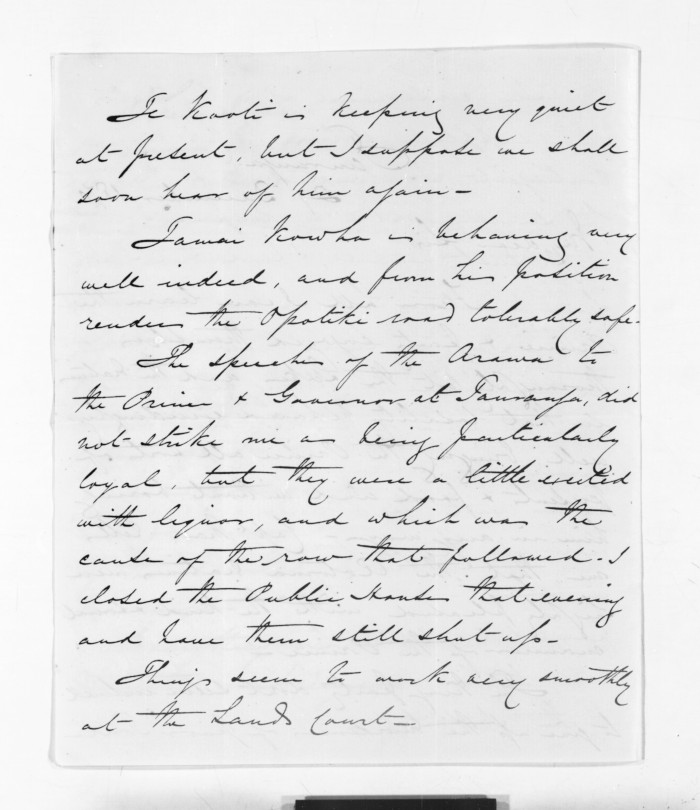 Te Kooti is keeping very quiet
at present, but I suppose we shall
soon hear of him again -
Tamai Kowha is behaving very
well indeed, and from his position
renders the Opotiki road tolerably safe.
The speeches of the Arawa to
the Prince & Governor at Tauranga, did
not strike me as being particularly
loyal, but they were a little excited
with liquor, and which was the
cause of the row that followed. I
closed the Public Houses that evening
and have them still shut up -
Things seem to work very smoothly
at the Lands Court -